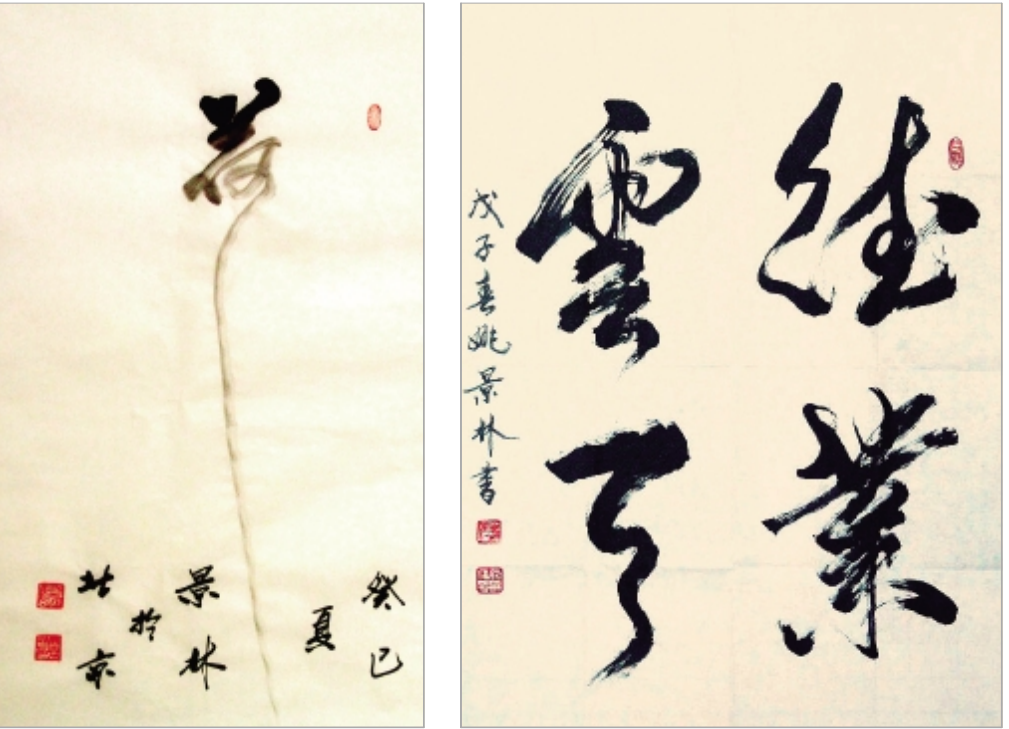 荷
癸巳
夏
景林
於
北京
業
雲天
戊子春姚景林書